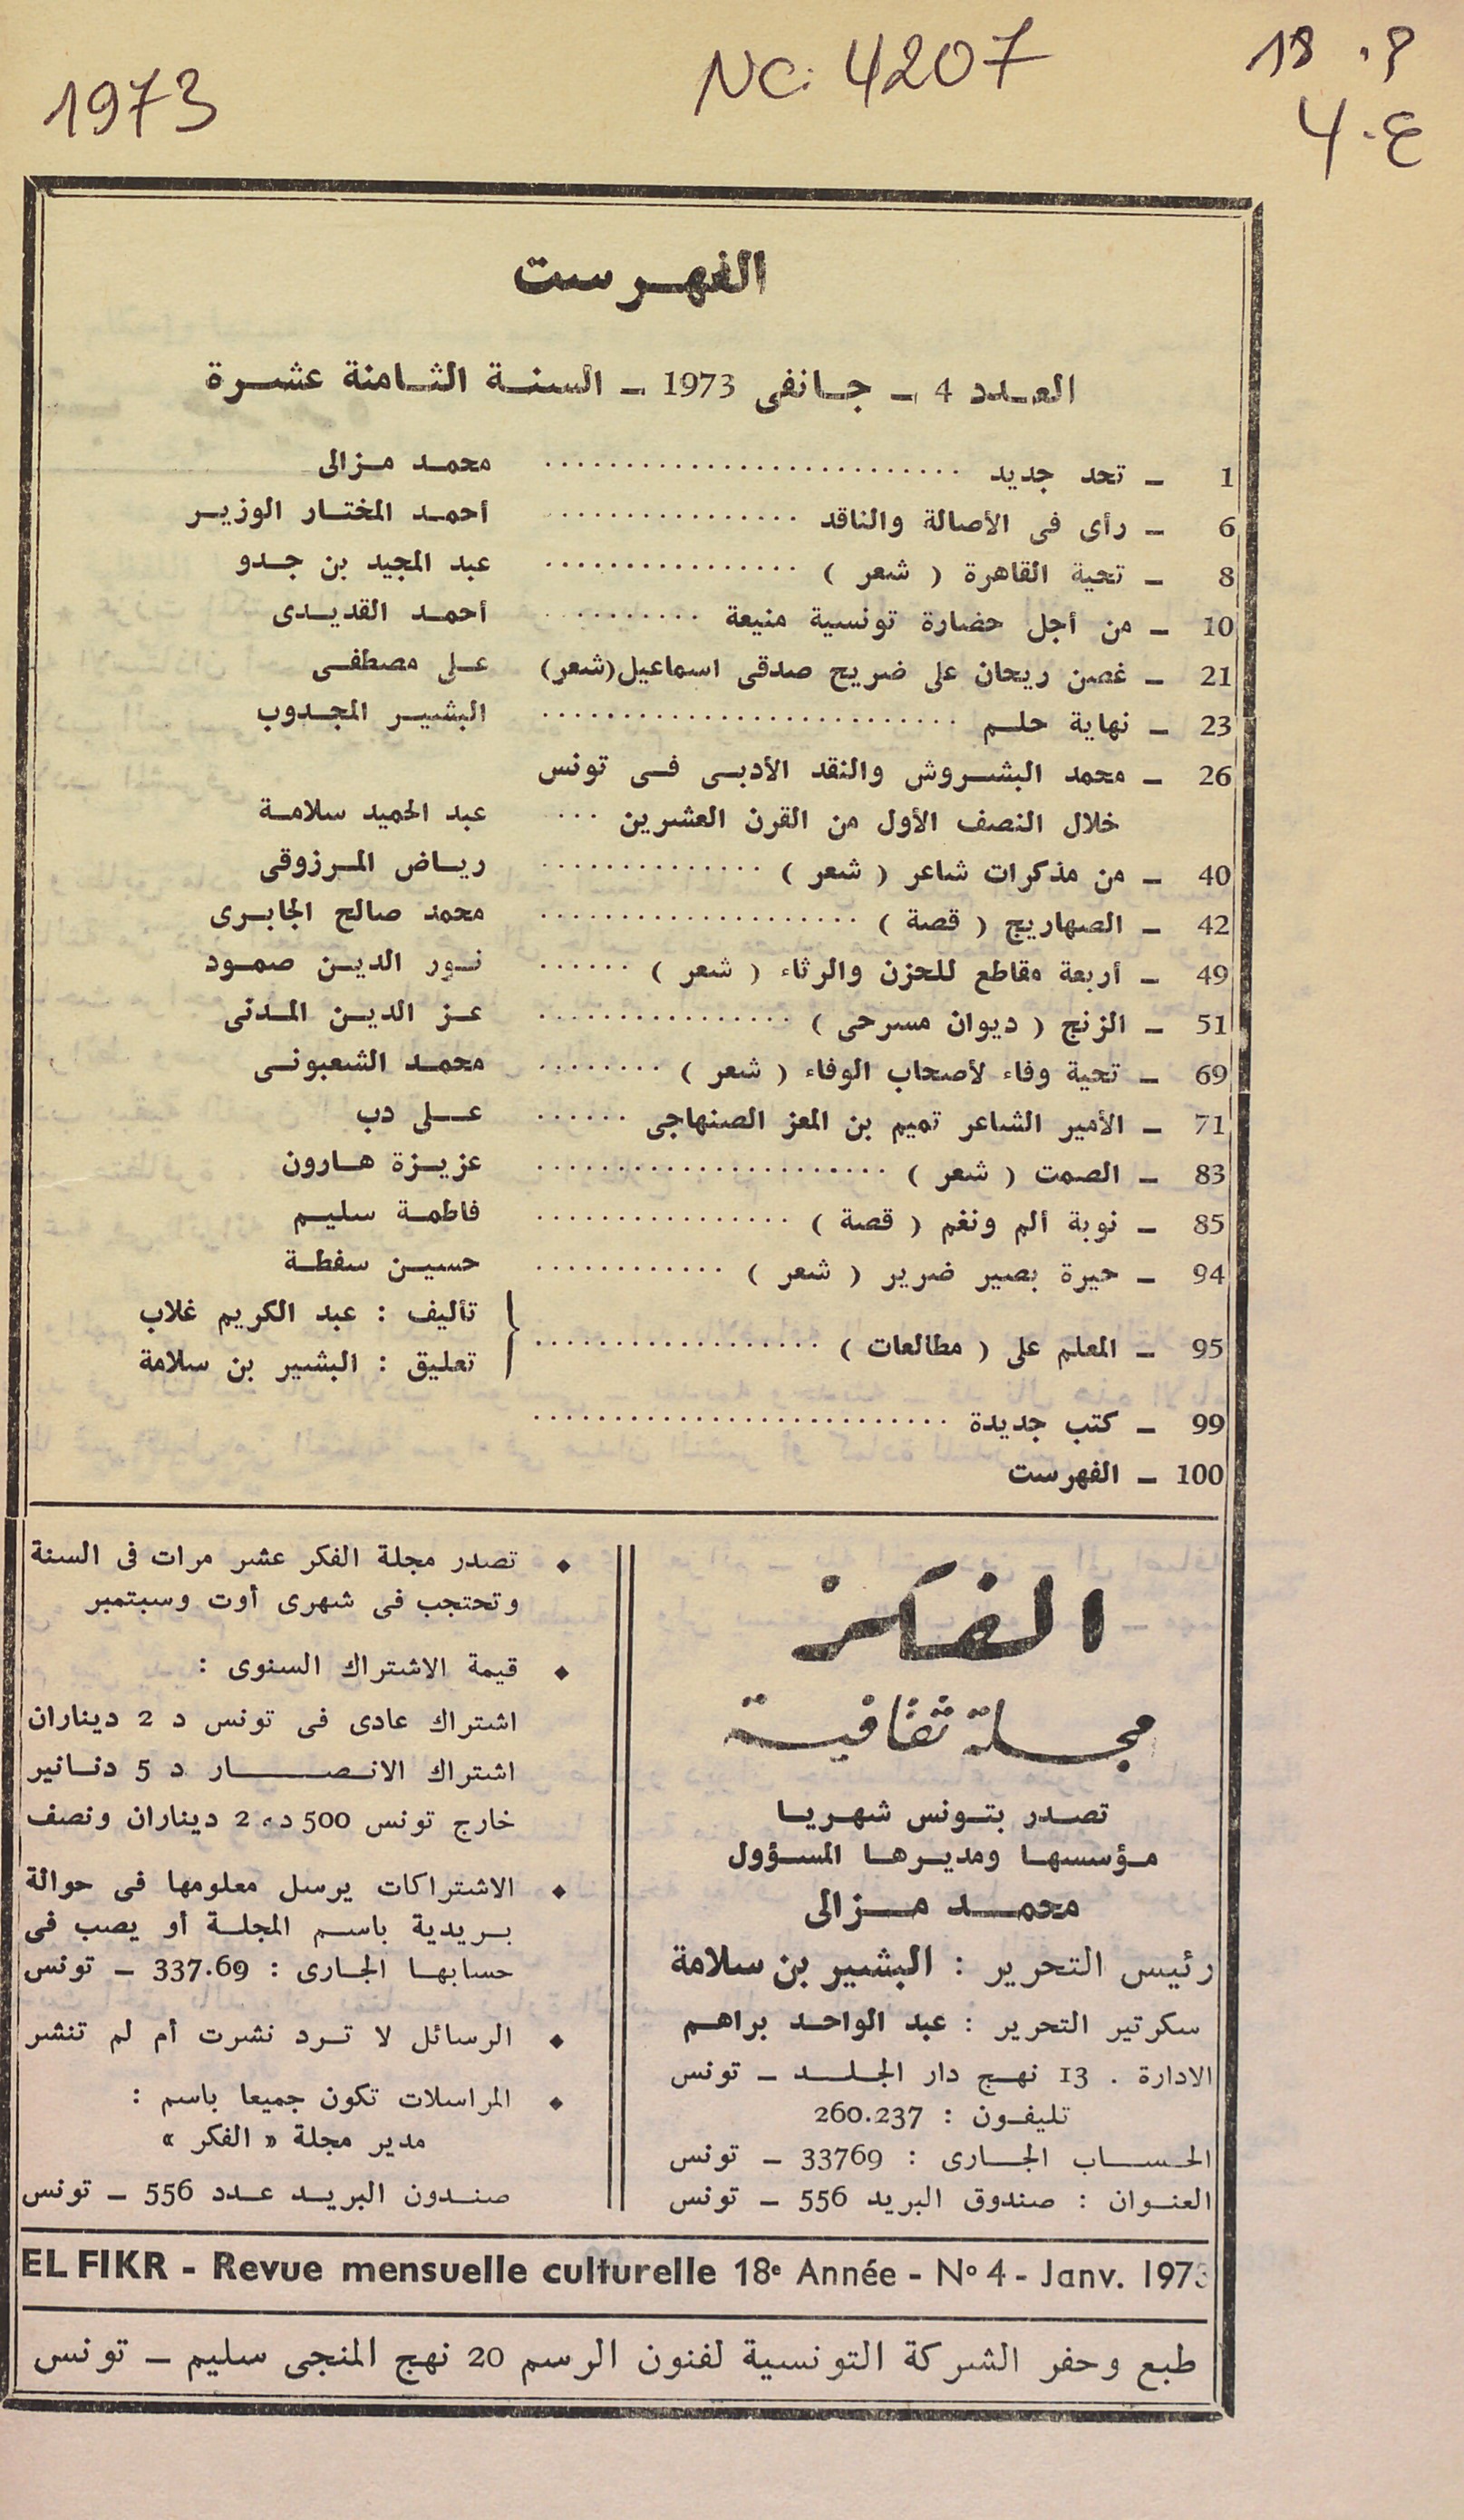 1973
NC: 4207
18 . م
4 . ع
الفهرست
العدد 4 ـ جانفى 1973 ـ السنة الثامنة عشرة
1 ـ تحد جديد .......................... محمد مزالى
6 ـ رأى فى الأصالة والناقد ................ أحمد المختار الوزير
8 ـ تحية القاهرة ( شعر ) ................ عبد المجيد بن جدو
10 ـ من أجل حضارة تونسية منيعة .......... أحمد القديدى
21 ـ غصن ريحان على ضريح صدقى اسماعيل (شعر) على مصطفى
23 ـ نهاية حلم .......................... البشير المجدوب
26 ـ محمد البشروش والنقد الأدبى فى تونس
خلال النصف الأول من القرن العشرين .... عبد الحميد سلامة
40 ـ من مذكرات شاعر ( شعر ) .............. رياض المرزوقى
42 ـ الصهاريج ( قصة ) .................... محمد صالح الجابرى
49 ـ أربعة مقاطع للحزن والرثاء ( شعر ) ...... نور الدين صمود
51 ـ الزنج ( ديوان مسرحى ) ................ عز الدين المدنى
69 ـ تحية وفاء لأصحاب الوفاء ( شعر ) ........ محمد الشعبونى
71 ـ الأمير الشاعر تميم بن المعز الصنهاجى ...... على دب
83 ـ الصمت ( شعر ) ...................... عزيزة هارون
85 ـ نوبة ألم ونغم ( قصة ) ................ فاطمة سليم
94 ـ حيرة بصير ضرير ( شعر ) ............ حسين سفطة
95 ـ المعلم على ( مطالعات ) .................. { تأليف : عبد الكريم غلاب
تعليق : البشير بن سلامة
99 ـ كتب جديدة ..........................
100 ـ الفهرست
الفكر
مجلة ثقافية
تصدر بتونس شهريا
مؤسسها ومديرها المسؤول
محمد مزالى
رئيس التحرير : البشير بن سلامة
سكرتير التحرير : عبد الواحد براهم
الادارة . 13 نهج دار الجلد ـ تونس
تليفون : 260.237
الحساب الجارى : 33769 ـ تونس
العنوان : صندوق البريد 556 ـ تونس
◆ تصدر مجلة الفكر عشر مرات فى السنة
وتحتجب فى شهرى أوت وسبتمبر
◆ قيمة الاشتراك السنوى :
اشتراك عادى فى تونس د 2 ديناران
اشتراك الانصار د 5 دنانير
خارج تونس 500 د، 2 ديناران ونصف
◆ الاشتراكات يرسل معلومها فى حوالة
بريدية باسم المجلة أو يصب فى
حسابها الجارى : 337.69 ـ تونس
◆ الرسائل لا ترد نشرت أم لم تنشر
◆ المراسلات تكون جميعا باسم :
مدير مجلة « الفكر »
صندون البريد عدد 556 ـ تونس
EL FIKR - Revue mensuelle culturelle 18e Année - No 4 - Janv. 1973
طبع وحفر الشركة التونسية لفنون الرسم 20 نهج المنجى سليم ـ تونس